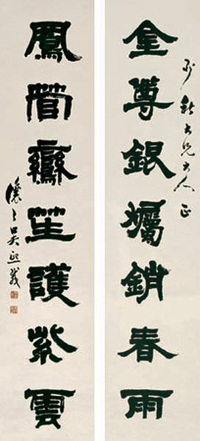 大兄大人正
金尊銀爥銷春雨
鳳管鸞笙護紫雲
讓之吳熙載